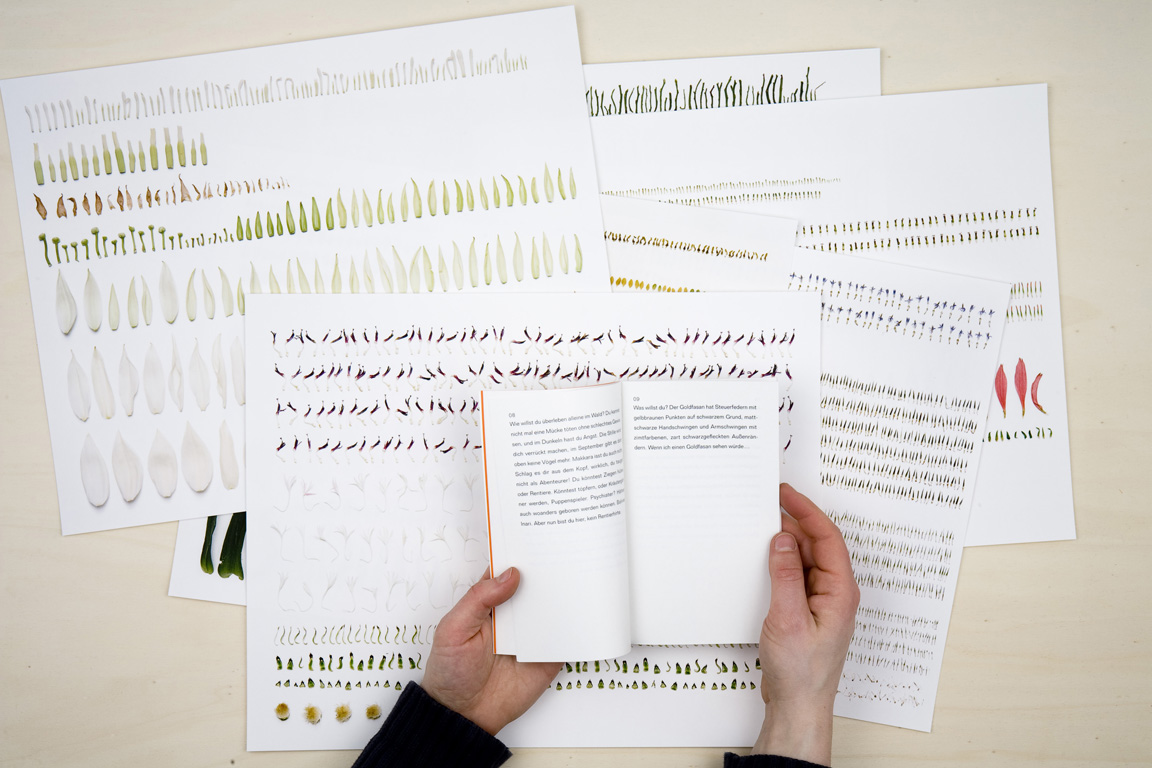 08
Wie willst du überleben alleine im Wald? Du kannst
nicht mal eine Mücke töten ohne schlechtes Gewis-
sen, und im Dunkeln hast du Angst. Die Stille wird
dich verrückt machen, im September gibt es dort
oben keine Vögel mehr. Makkara isst du auch
Schlag es dir aus dem Kopf, wirklich, du
nicht als Abenteurer! Du könntest Ziegen
oder Rentiere. Könntest töpfern, oder
ner werden, Puppenspieler. Psychiater?
auch woanders geboren werden können.
Iran. Aber nun bist du hier, kein Rentierhirte.
09
Was willst du? Der Goldfasan hat Steuerfedern mit
gelbbraunen Punkten auf schwarzem Grund, matt-
schwarze Handschwingen und Armschwingen mit
zimtfarbenen, zart schwarzgefleckten Außenrän-
dern. Wenn ich einen Goldfasan sehen würde…